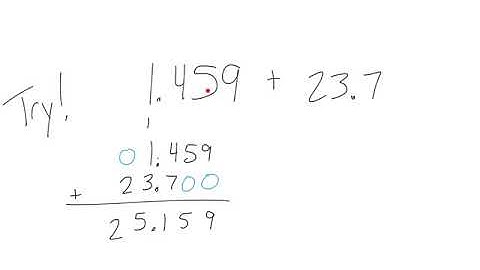 Try! 1.459 + 23.7
1
01.459
+ 23.700
25.159